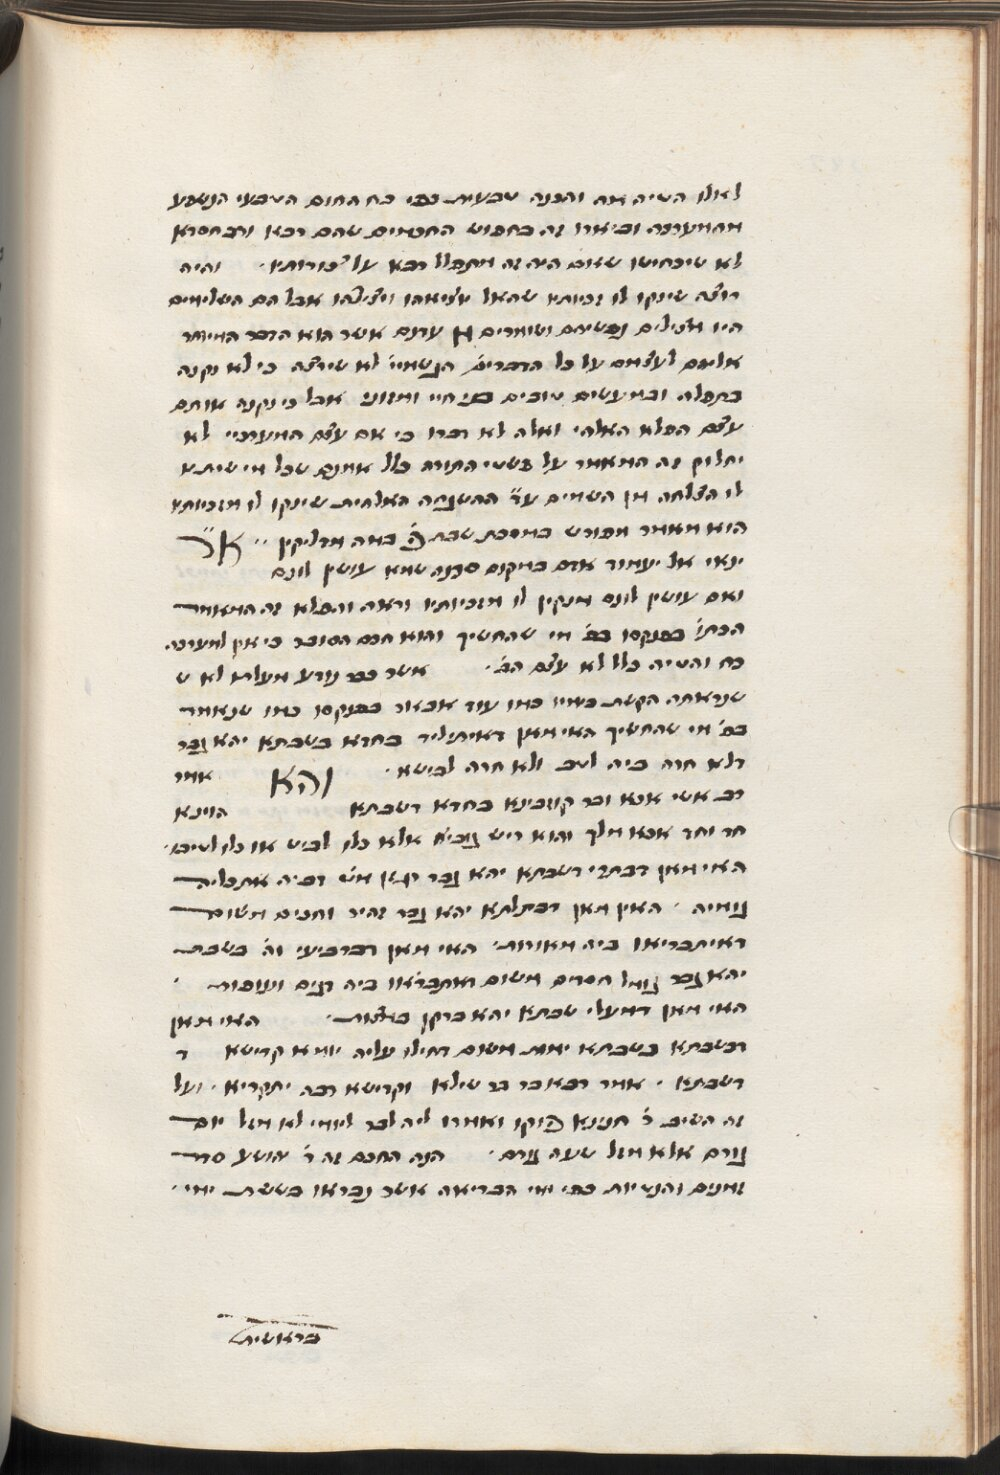 לאלו הטייה מה והכנה טבעית כפי כח החום הטבעי הנשפע
מהמערכה וביארו זה בחפוש החכמים שהם רבא ורב חסדא
לא שיכחישו ששום היה זה מתפלל רבא על והיה
רוצה שינקו לו זכיותיו שהאל יוציאהו ויצילהו אבל הם השלימים
היו מצילים נפשותם ושומרים עדנם אשר הוא הדבר המיוחד
אליהם לעצמם על כל הדברים הגשמיי' לא שירצה כי לא נקנה
בתפלה ובמעשים טובים בני חיי ומזוני אבל כי נקנה אותם
עצם הפלא האלהי ואלה לא דברו כי אם עצם המערכיי לא
יחלוק זה המאמר על פשטי התורה כלל אמנם שכל מי שיתיא
לו הצלחה מן השמים ע"ד ההשגחה האלהית שינקו לו מזכיותיו
הוא מאמר מפורש במסכת שבת פ' במה מדליקין א"ר
ינאי אל יעמוד אדם במקום סכנה שמא עושין לו נס
ואם עושין לו נס מנקין לו מזכיותיו וראה והפלא זה המאמר
הכתו' בפנקסו בפ' מי שהחשיך והוא חכם הסובר כי אין למערכה
כח והטייה כלל לא עצם הב' אשר כבר נודע מעלתו לא ש
שנראתה הקשת בימיו כמו עוד אבאר בפנקסו כמו שנאמר
בפ' מי שהחשיך האי מאן דאיתיליד בחדא בשבתא יהא גבר
דלא חדה ביה לטב ולא חדה לבישא והא אמר
רב אשי אנא ובר קוזבינא בחדא דשבתא הוינא
חד וחד אנא מלך והוא ריש גנבי' אלא כולו לביש או כולו לטיבו
האי מאן דבתרי דשבתא יהא גבר רגזן מש' דביה אתפליה
מיה האין מאן דבתלתא יהא גבר זהיר וחכים משום
דאיתבריאו ביה מאורות האי מאן דברביעי וה' בשבת
יהא גבר גומל חסדים משום דאתבראו ביה דגים ועופות
האי מאן דמעלי שבתא יהא ברקן במצות האי מאן
דבשבתא בשבתא ימות משום דחילו עליה יומא קדישא ד
דשבתא אמר רבא בר בר שילא וקדישא רבה יתקריא ועל
זה השיב ר' חנינא פוקו ואמרו ליה לבר ליואי לא מזל יום
גורם אלא מזל שעה גורם הנה החכם זה ר' יהושע סדר
זמנים והנטיות כפי ימי הבריאה אשר נבראו בששת ימי
בראשית